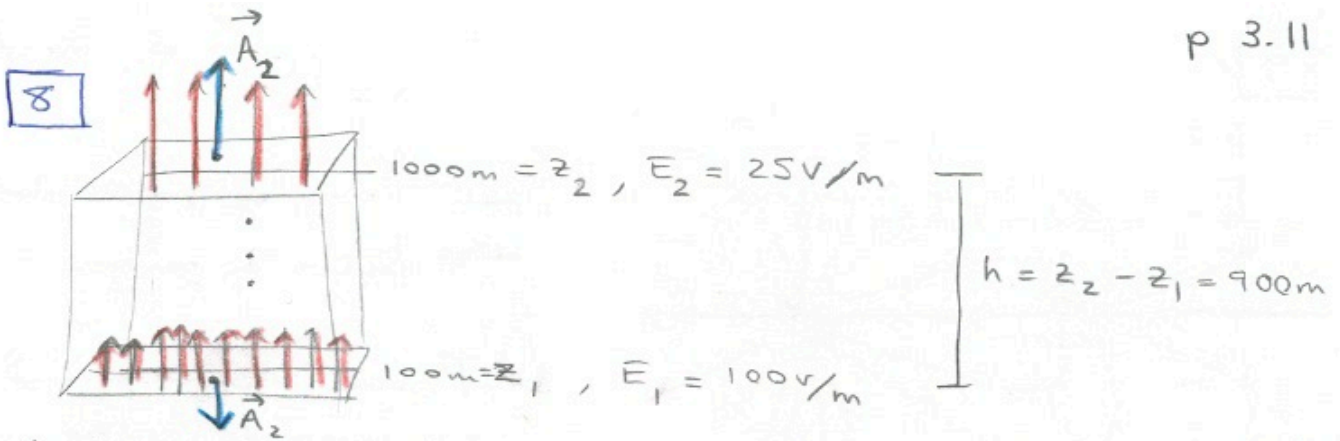 p 3.11
8
A⃗₂
1000m = z₂ , E₂ = 25V/m
h = z₂ - z₁ = 900m
100m=z₁ , E₁ = 100v/m
A⃗₂